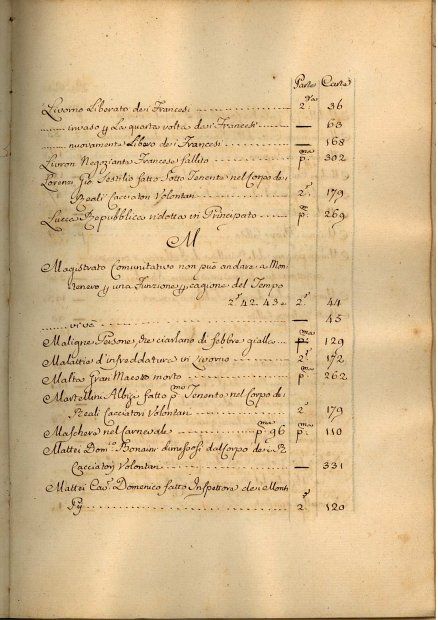 Parte Carte
Livorno Liberato dei Francesi 2.da 36
invaso p La quarta volta dei Francesi — 63
nuovamente Libero dei Francesi — 168
Livron Negoziante Francese fallito p.ma 302
Lorenzi Gio. fatto Sotto Tenente nel Corpo dei
Reali Cacciatori Volontari 2.a 179
Lucca Repubblica ridotta in Principato p.a 269
M
Magistrato Comunitativo non può andare a Mon-
tenero p una Funzione p cagione del Tempo
2.a 42. 43. e 2.a 44
— 45
Maligne Persone, che ciarlano di febbre gialla p.ma 129
Malattie d'infreddature in Livorno 2.a 172
Malta Gran Maestro morto p.a 262
Martellini Albizo fatto p.mo Tenente nel Corpo dei
Reali Cacciatori Volontari 2.a 179
Maschere nel Carnevale p.ma 96 p.ma 110
Mattei Dom.co Bonaini dimessosi dal Corpo dei R.
Cacciatori Volontari — 331
Mattei Cav. Domenico fatto Inspettore dei Monti
Pij 2.a 120